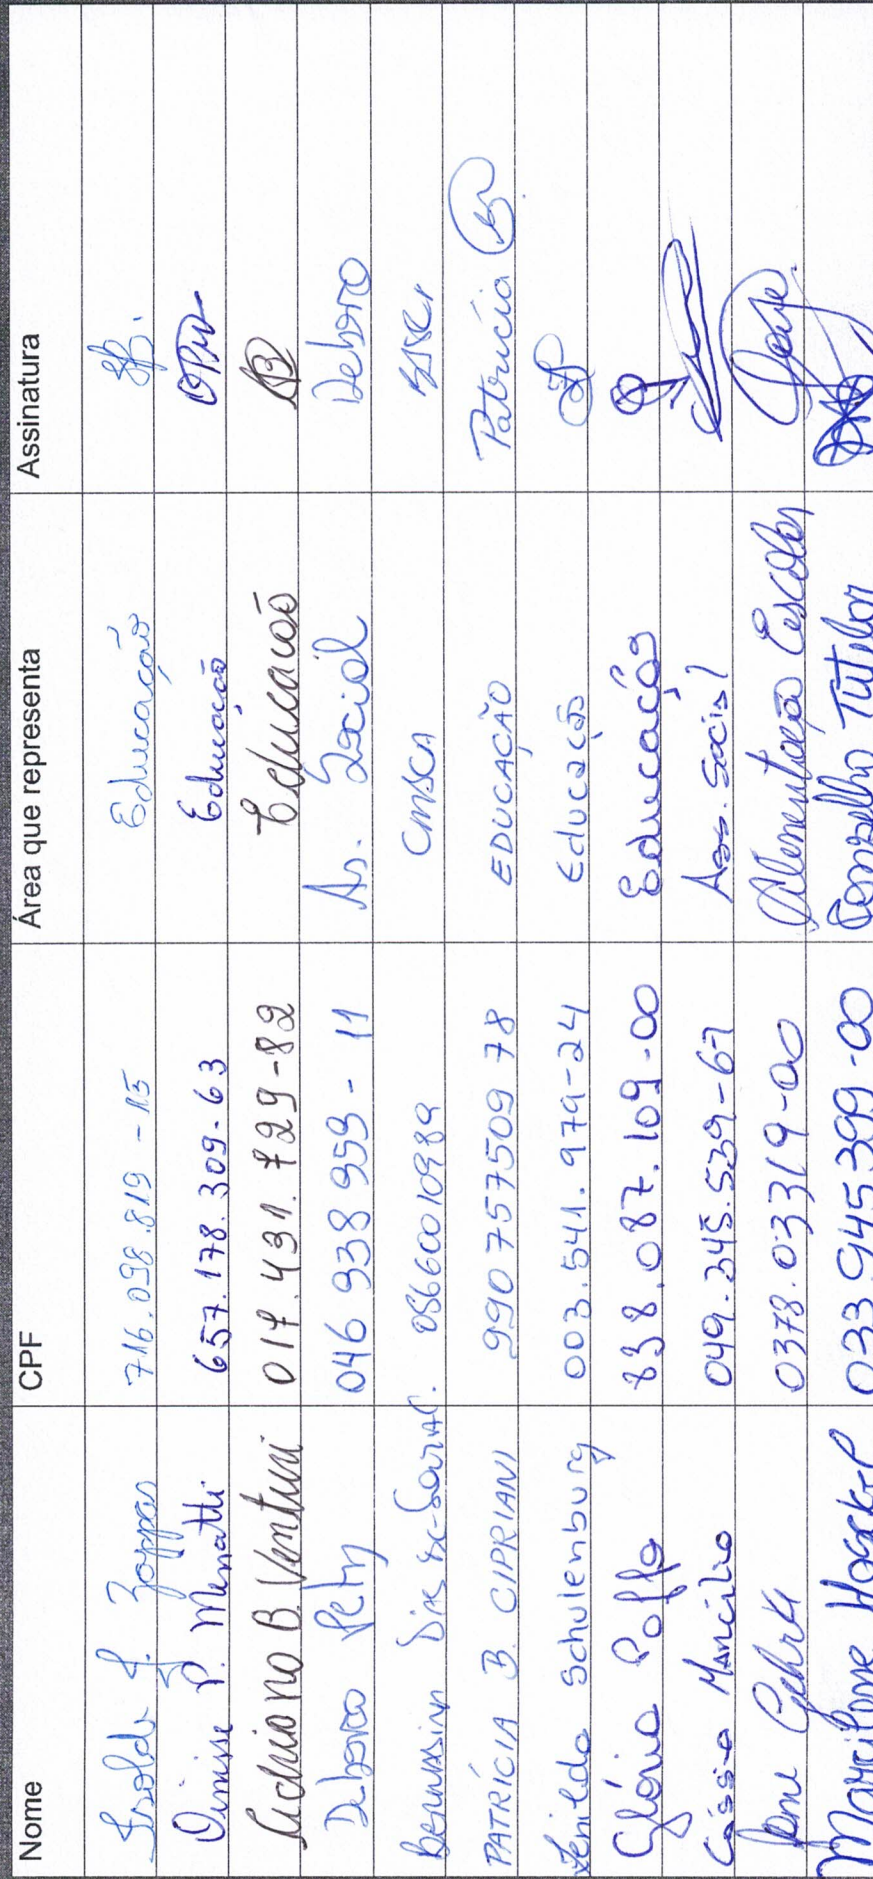 Nome CPF Área que representa Assinatura
Isolde Zoppas 716.098.819-15 Educação
P. Menatti 657.178.309-63 Educação
B. Venturi 017.431.729-82 Educação
Debora Petry 046 938 959-11 As. Social Debora
05660010989 CMSCA
PATRÍCIA B. CIPRIANI 990 757509 78 EDUCAÇÃO Patrícia
Zenilda Schulenburg 003.541.979-24 Educação
Glória Poffo 838.087.109-00 Educação
Cássio Mancilio 049.345.539-67 Ass. Social
Gehrke 0378.03319-00 Alimentação Escolar
033.945.399-00 Conselho Tutelar